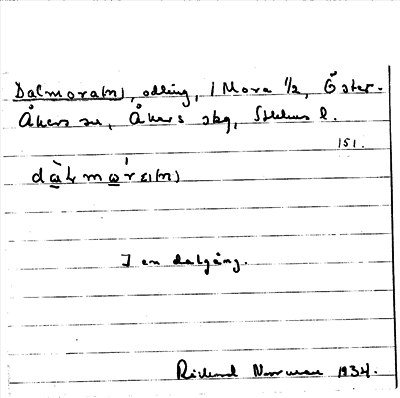 Dalmora(n), odling, 1 Mora 1/2, Öster-
Åkers sn, Åkers skg, Sthlms l.
151.
I en dalgång.
Rickard Norrman 1934.